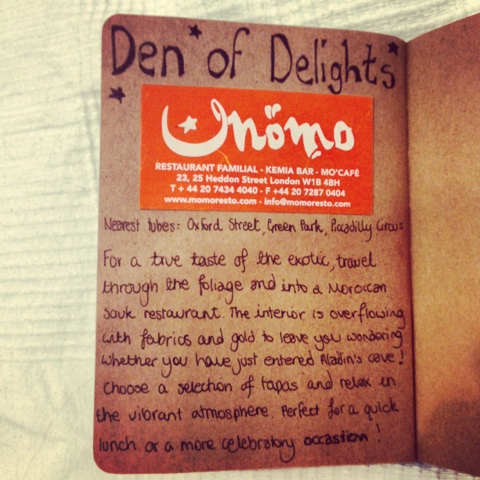 Den of Delights
momo
RESTAURANT FAMILIAL - KEMIA BAR - MO'CAFÉ
23, 25 Heddon Street London W1B 4BH
T + 44 20 7434 4040 - F +44 20 7287 0404
www.momoresto.com - info@momoresto.com
Nearest tubes: Oxford Street, Green Park, Piccadilly Circus
For a true taste of the exotic, travel
through the foliage and into a Moroccan
Souk restaurant. The interior is overflowing
with fabrics and gold to leave you wondering
whether you have just entered Aladin's cave!
Choose a selection of tapas and relax in
the vibrant atmosphere. Perfect for a quick
lunch or a more celebratory occastion!